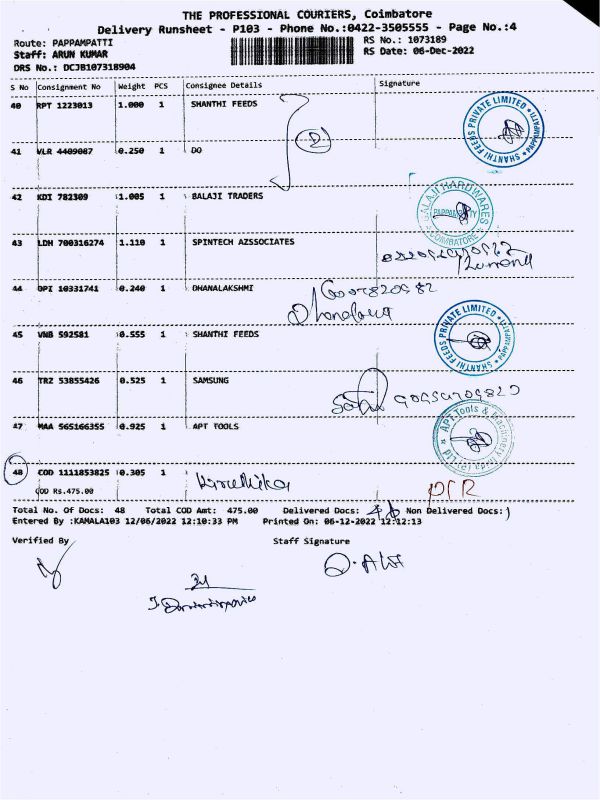 THE PROFESSIONAL COURIERS, Coimbatore
Delivery Runsheet - P103 - Phone No.:0422-3505555 - Page No.:4
Route: PAPPAMPATTI
Staff: ARUN KUMAR
DRS No.: DCJB107318904
RS No.: 1073189
RS Date: 06-Dec-2022
S No Consignment No Weight PCS Consignee Details Signature
40 RPT 1223013 1.000 1 SHANTHI FEEDS
SHANTHI FEEDS PRIVATE LIMITED * PAPPAMPATTI *
2
41 VLR 4409087 0.250 1 DO
42 KDI 782309 1.005 1 BALAJI TRADERS
BALAJI HARDWARES
COIMBATORE
43 LDH 700316274 1.110 1 SPINTECH AZSSOCIATES
44 OPI 10331741 0.240 1 DHANALAKSHMI
45 VNB 592581 0.555 1 SHANTHI FEEDS
SHANTHI FEEDS PRIVATE LIMITED * PAPPAMPATTI *
46 TRZ 53855426 0.525 1 SAMSUNG
47 MAA 565166355 0.925 1 APT TOOLS
APT Tools & Machinery India (P) Ltd
48 COD 1111853825 0.305 1
COD Rs.475.00
Total No. Of Docs: 48 Total COD Amt: 475.00 Delivered Docs: Non Delivered Docs: 1
Entered By :KAMALA103 12/06/2022 12:10:33 PM Printed On: 06-12-2022 12:12:13
Verified By Staff Signature